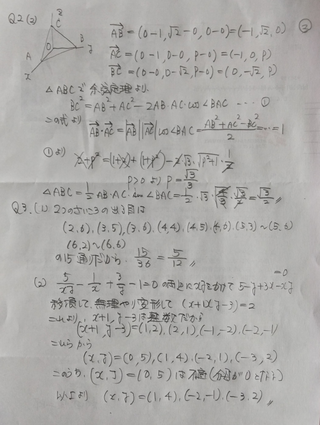 Q2(2)
③
z
C
B
y
O
A
x
AB = (0-1, √2-0, 0-0) = (-1, √2, 0)
AC = (0-1, 0-0, P-0) = (-1, 0, P)
BC = (0-0, 0-√2, P-0) = (0, -√2, P)
△ABCで余弦定理より
BC² = AB² + AC² - 2AB AC cos∠BAC … ①
AB・AC = |AB||AC| cos∠BAC = (AB²+AC²-BC²)/2 = 1
①より
P>0より P =
△ABC = 1/2 AB・AC sin∠BAC =
Q3.(1) 2つのさいころの出る目は
(2,6), (3,5), (3,6), (4,4), (4,5), (4,6), (5,3)~(5,6)
(6,2)~(6,6)
の15通りだから 15/36 = 5/12
(2) 5/xy - 1/x + 3/y - 1 = 0 の両辺にxyをかけて 5-y+3x-xy=0
移項して、無理やり変形して (x+1)(y-3)=2
これより、x+1, y-3は整数だから
(x+1, y-3) = (1,2), (2,1), (-1,-2), (-2,-1)
これらから
(x,y) = (0,5), (1,4), (-2,1), (-3,2)
このうち、(x,y) = (0,5) は不適
以上より (x,y) = (1,4), (-2,1), (-3,2)